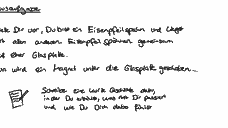 ausaufgabe
Dir vor, Du bist ein Eisenpfeilspahn und liegst
mit allen anderen Eisenpfeilspänen gemeinsam
auf einer Glasplatte.
wird ein Magnet unter die Glasplatte geschoben...
Schreibe eine kurze Geschichte dazu,
in der Du erklärst, was mit Dir passiert
und wie Du Dich dabei fühlst